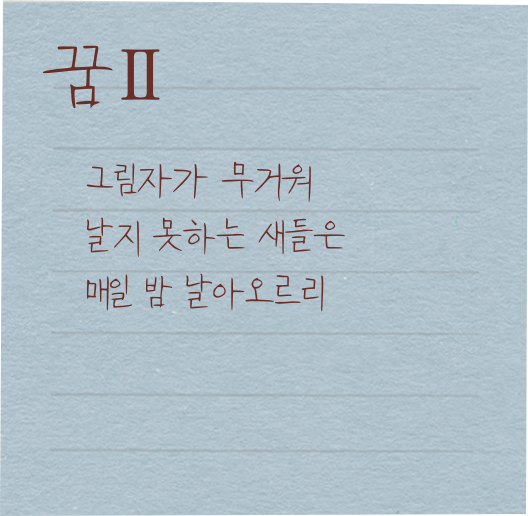 꿈 Ⅱ
그림자가 무거워
날지 못하는 새들은
매일 밤 날아오르리